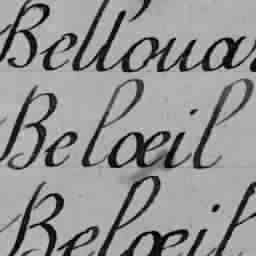 Bellouar
Belœil
Belœil